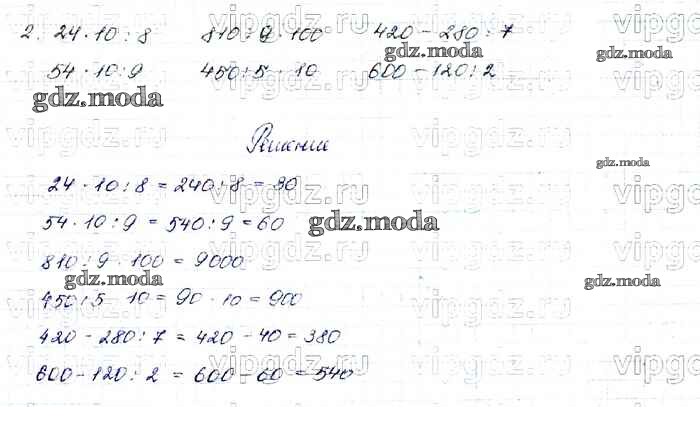 2. 24 · 10 : 8 810 : 9 · 100 420 - 280 : 7
54 · 10 : 9 450 : 5 · 10 600 - 120 : 2
Решение
24 · 10 : 8 = 240 : 8 = 30
54 · 10 : 9 = 540 : 9 = 60
810 : 9 · 100 = 9000
450 : 5 · 10 = 90 · 10 = 900
420 - 280 : 7 = 420 - 40 = 380
600 - 120 : 2 = 600 - 60 = 540
gdz.moda
gdz.moda
gdz.moda
gdz.moda
gdz.moda
gdz.moda
gdz.moda
vipgdz.ru